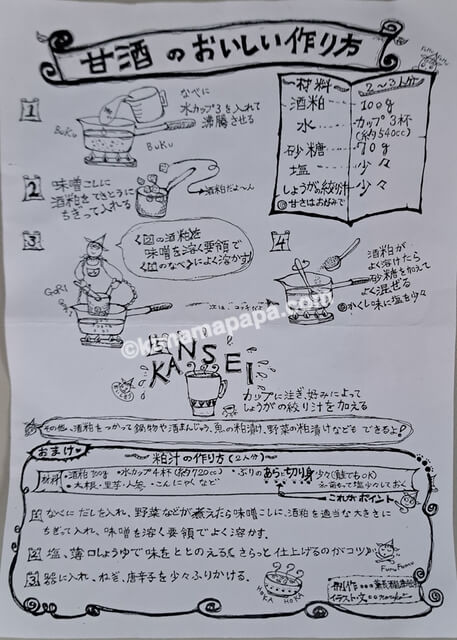 甘酒のおいしい作り方
1
なべに
水カップ3を入れて
沸騰させる
BUKU
BUKU
材料 2〜3人分
酒粕 100g
水 カップ3杯
(約540cc)
砂糖 70g
塩 少々
しょうがの絞り汁 少々
◎甘さはお好みで
2
味噌こしに
酒粕をてきとうに
ちぎって入れる
酒粕だよ〜ん
3
の酒粕を
味噌を溶く要領で
のなべによく溶かす
GORI
4
酒粕が
よく溶けたら
砂糖を加えて
よく混ぜる
◎かくし味に塩を少々
©kohamapapa.com
KANSEI
カップに注ぎ、好みによって
しょうがの絞り汁を加える
その他、酒粕をつかって鍋物や酒まんじゅう、魚の粕漬け、野菜の粕漬けなども できるよ!
おまけ
粕汁の作り方(2人分)
材料
・酒粕100g ・水カップ4杯(約720cc) ・ぶりのあらと切り身少々(鮭でもOK)
・大根・里芋・人参・こんにゃくなど
これがポイント
1 なべにだしを入れ、野菜などが煮えたら味噌こしに、酒粕を適当な大きさに
ちぎって入れ、味噌を溶く要領でよく溶かす。
2 塩、薄口しょうゆで味をととのえる(さらっと仕上げるのがコツ)
3 器に入れ、ねぎ、唐辛子を少々ふりかける。
HOKA HOKA
制作
イラスト・文